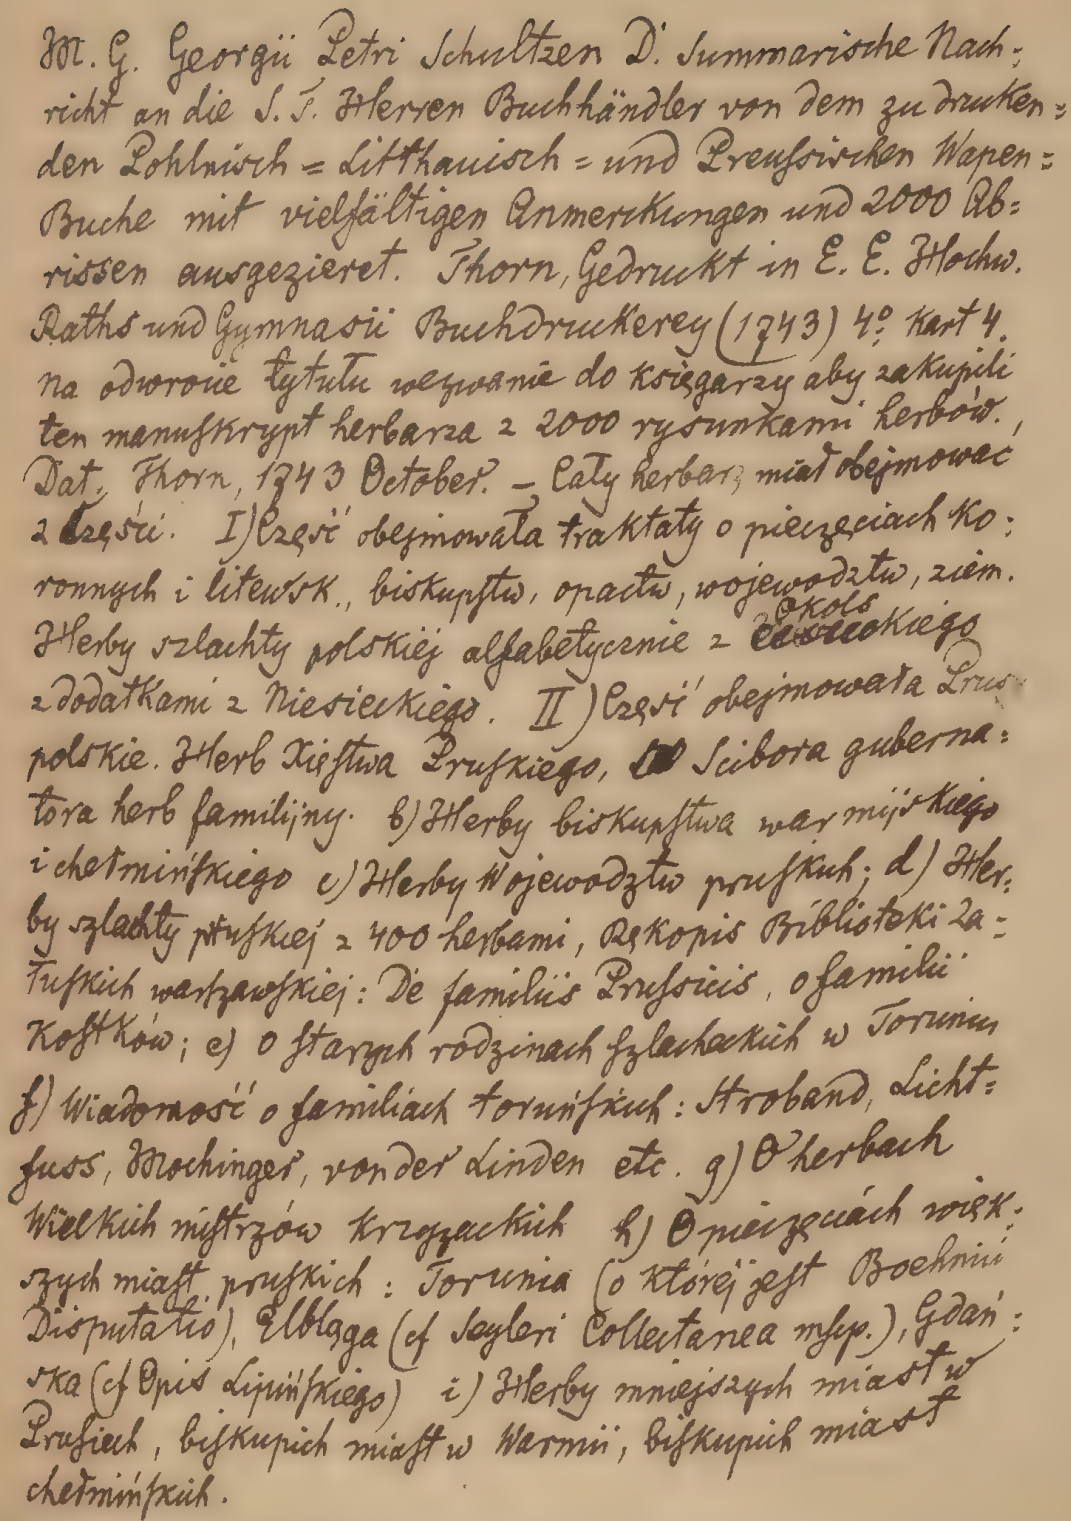 M. G. Georgii Petri Schultzen D. Summarische Nach-
richt an die S. T. Herren Buchhändler von dem zu drucken=
den Pohlnisch = Litthauisch = und Preussischen Wapen=
Buche mit vielfältigen Anmerckungen und 2000 Ab=
rissen ausgezieret. Thorn, Gedruckt in E. E. Hochw.
Raths und Gymnasii Buchdruckerey (1743) 4º Kart 4.
na odwrocie tytułu wezwanie do księgarzy aby zakupili
ten manuskrypt herbarza z 2000 rysunkami herbów.,
Dat. Thorn, 1743 October. – Cały herbarz miał obejmować
2 części. I) Część obejmowała traktaty o pieczęciach ko=
ronnych i litewsk., biskupstw, opactw, wojewodztw, ziem.
Herby szlachty polskiéj alfabetycznie z Okolskiego
z dodatkami z Niesieckiego. II) Część obejmowała Prusy
polskie. Herb Xięstwa Pruskiego, Scibora guberna=
tora herb familijny. b) Herby biskupstwa warmijskiego
i chełmińskiego c) Herby Wojewodztw pruskich; d) Her=
by szlachty pruskiej z 400 herbami, Rękopis Biblioteki Za=
łuskich warszawskiej: De familiis Prussicis, o familii
Kostków; e) O starych rodzinach szlacheckich w Toruniu
f) Wiadomość o familiach toruńskich: Stroband, Licht=
fuss, Mochinger, von der Linden etc. g) O herbach
Wielkich mistrzów krzyzackich h) O pieczęciach więk=
szych miast pruskich: Torunia (o któréj jest Boehmii
Disputatio), Elbląga (cf Seyleri Collectanea mscp.), Gdań=
ska (cf Opis Lipińskiego) i) Herby mniejszych miast w
Prusiech, biskupich miast w Warmii, biskupich miast
chełmińskich.